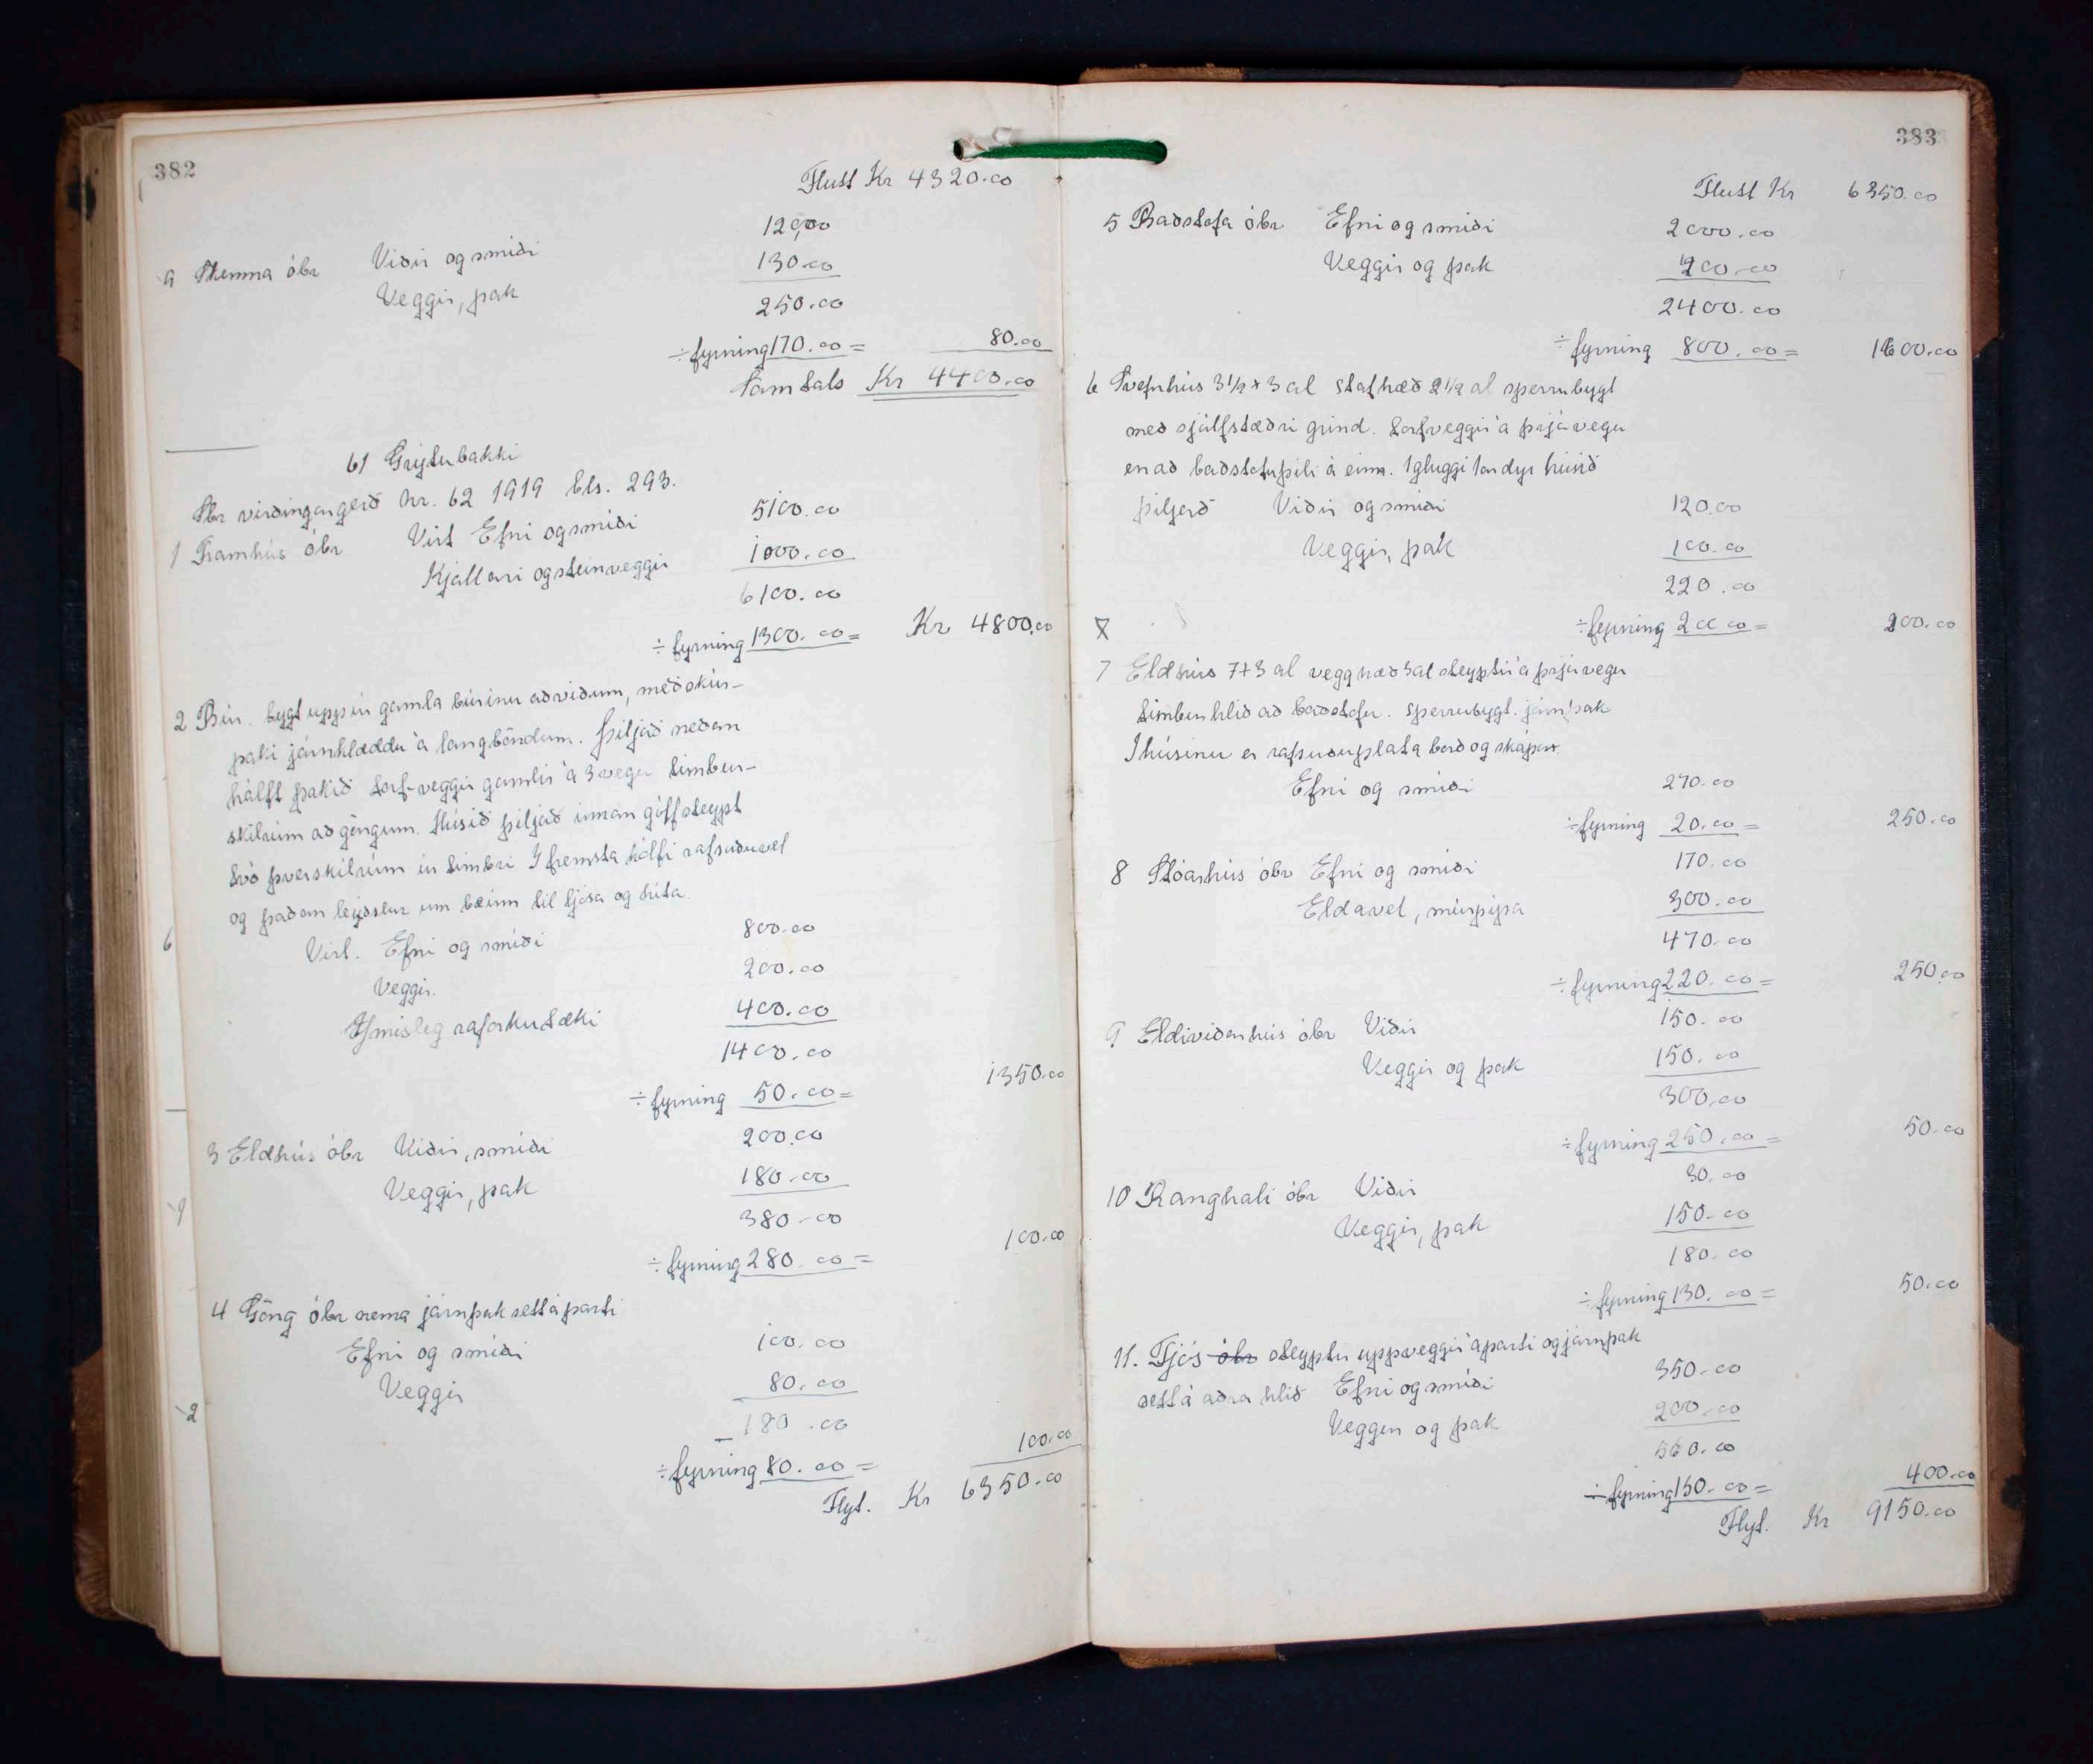 382
Flutt Kr 4320.00
120,00
9 Skemma óbr Viðir og smiði
130.00
Veggir, þak
250.00
÷ fyrning 170.00 = 80.00
Samtals Kr 4400.00
61 Grýtubakki
Sbr virðingargerð nr. 62 1919 bls. 293.
1 Framhús óbr Virt Efni og smiði 5100.00
Kjallari og steinveggir 1000.00
6100.00
÷ fyrning 1300.00 = Kr 4800.00
2 Búr. bygt upp úr gamla búrinu að viðum, með skúr-
þaki járnklæddu á langböndum. Þiljað neðan
hálft þakið torf-veggir gamlir á 3 vegu timbur-
skilrúm að göngum. Húsið þiljað innan gólf steypt
tvö þverskilrúm úr timbri I fremsta hólfi rafsuðuvel
og þaðan leiðslur um bæinn til ljósa og hita.
Virt. Efni og smiði 800.00
Veggir. 200.00
Ýmisleg raforkutæki 400.00
1400.00
÷ fyrning 50.00 = 1350.00
3 Eldhús óbr Viðir, smiði 200.00
Veggir, þak 180.00
380.00
÷ fyrning 280.00 = 100.00
4 Göng óbr nema járnþak sett á parti
Efni og smiði 100.00
Veggir 80.00
180.00
÷ fyrning 80.00 = 100.00
Flyt. Kr 6350.00
383
Flutt Kr 6350.00
5 Baðstofa óbr Efni og smiði 2000.00
Veggir og þak 400.00
2400.00
÷ fyrning 800.00 = 1600.00
6 Svefnhús 3½ + 3 al stafhæð 2½ al sperrubygt
með sjálfstæðri grind. torfveggir á þrjá vegu
en að baðstofuþili á einn. 1 gluggi 1 ar dyr húsið
þiljað Viðir og smiði 120.00
Veggir, þak 100.00
220.00
÷ fyrning 20 00 = 200.00
7 Eldhús 7+3 al vegghæð 3 al steyptir á þrjá vegu
timburhlið að baðstofu. Sperrubygt. járnþak
I húsinu er rafsuðuplata borð og skápar.
Efni og smiði 270.00
÷ fyrning 20.00 = 250.00
8 Stóarhús óbr Efni og smiði 170.00
Eldavel, múrpípa 300.00
470.00
÷ fyrning 220.00 = 250.00
9 Eldiviðarhús óbr Viðir 150.00
Veggir og þak 150.00
300.00
÷ fyrning 250.00 = 50.00
10 Ranghali óbr Viðir 30.00
Veggir, þak 150.00
180.00
÷ fyrning 130.00 = 50.00
11. Fjós óbr steyptir upp veggir á parti og járnþak
sett á aðra hlið Efni og smiði 350.00
Veggir og þak 200.00
550.00
÷ fyrning 150.00 = 400.00
Flyt. Kr 9150.00